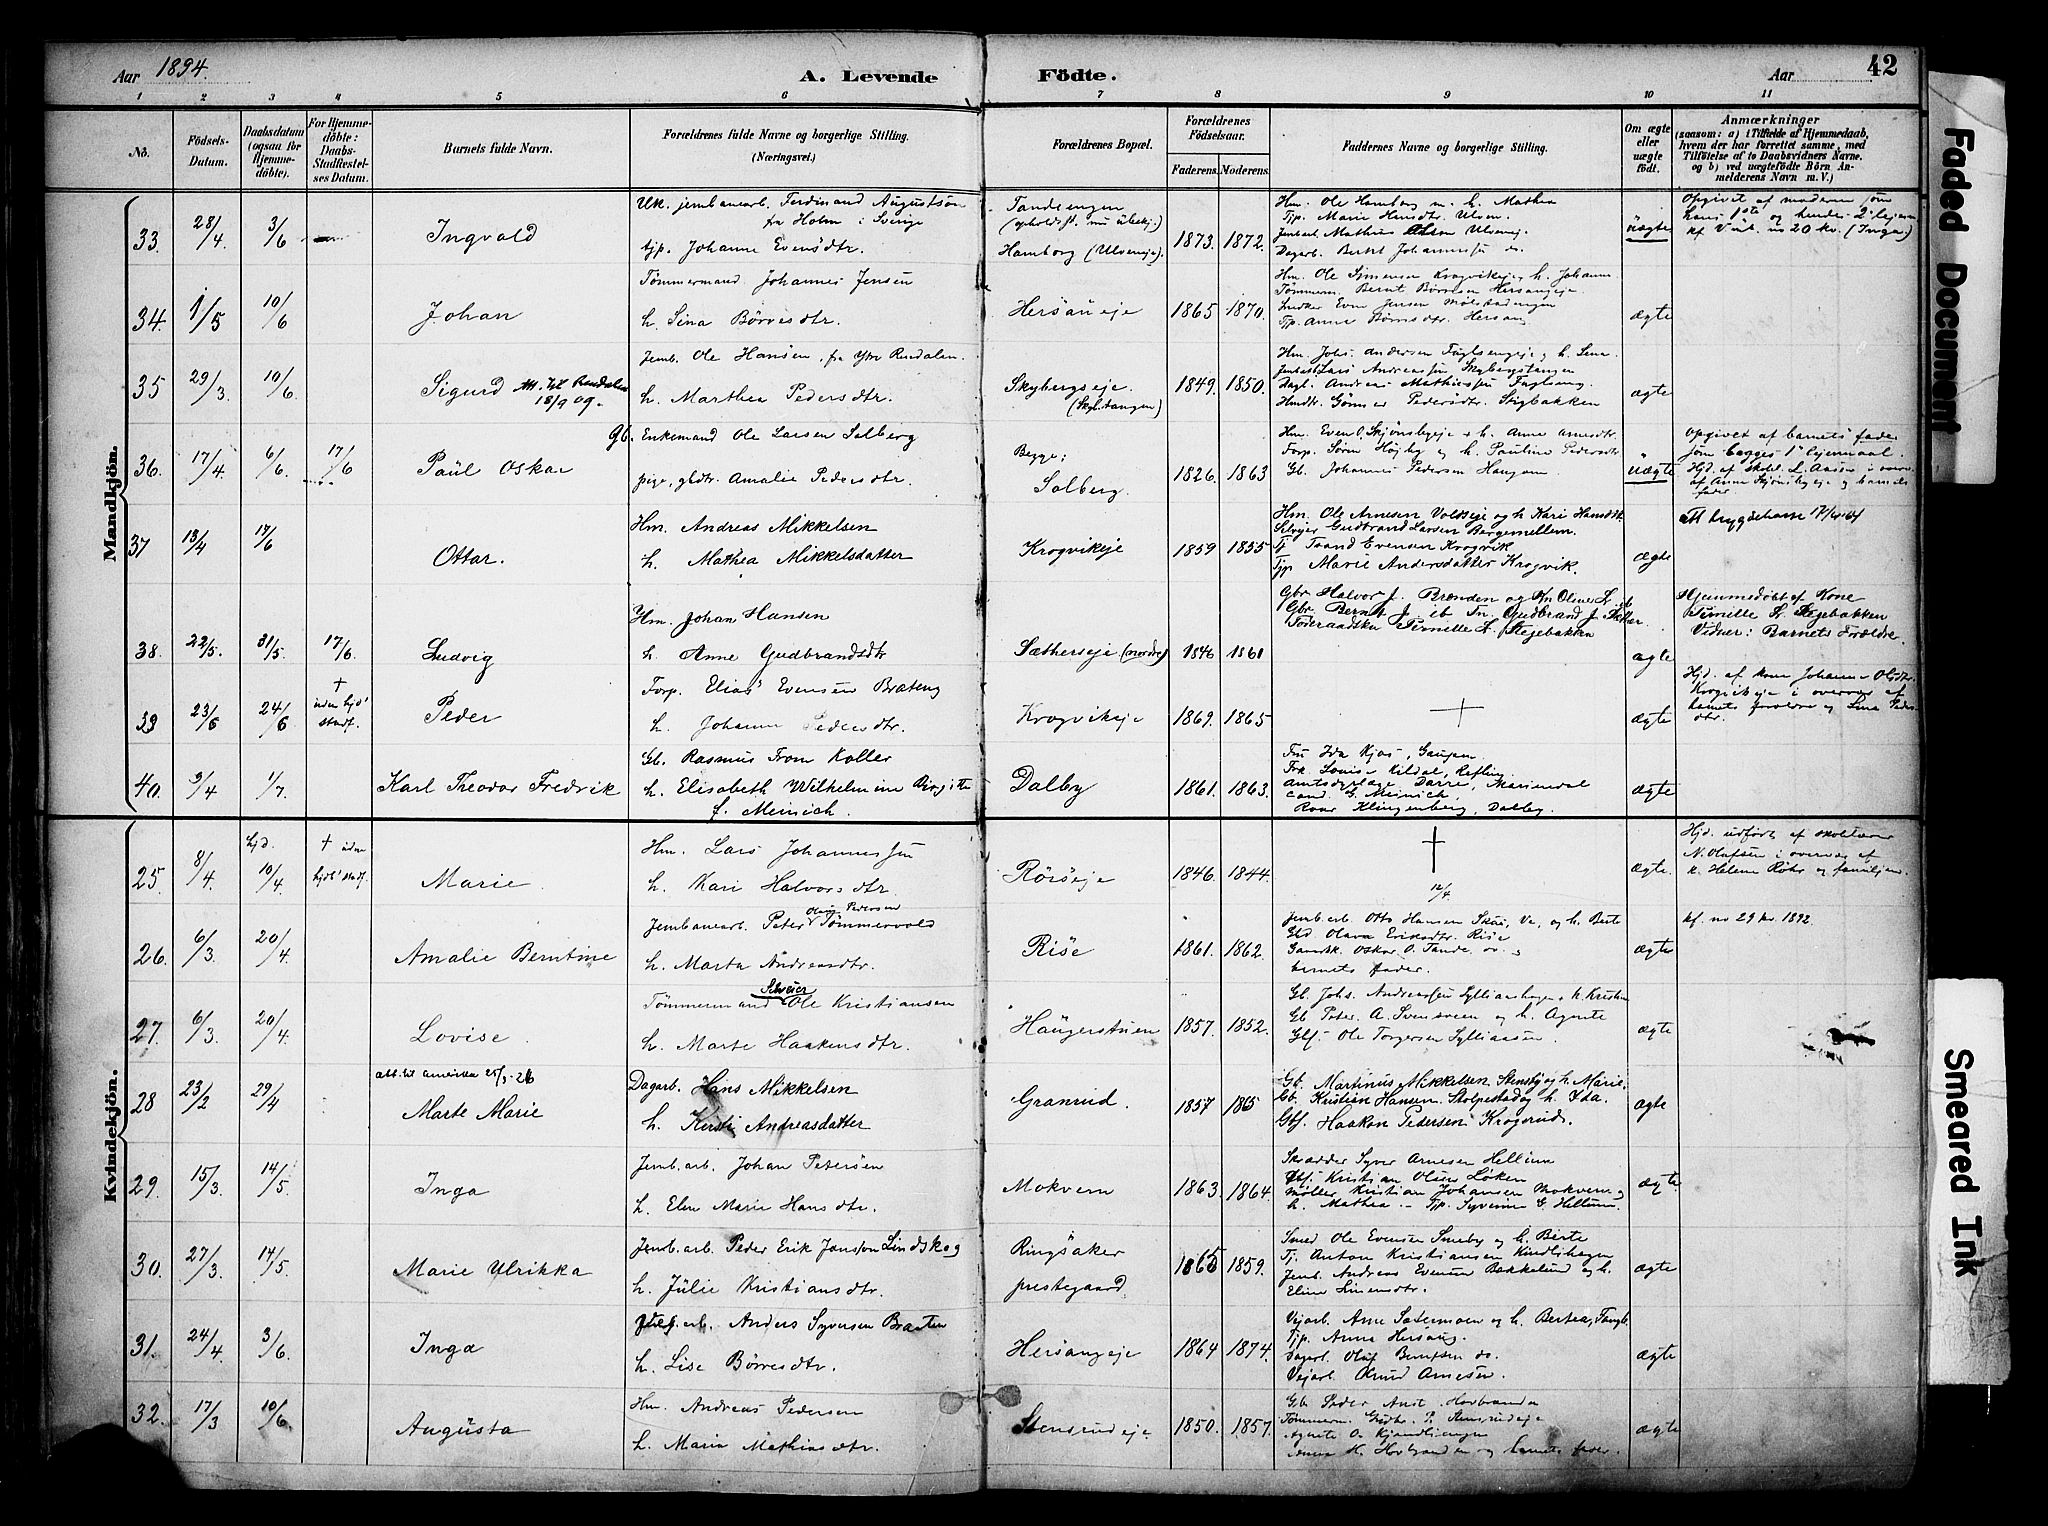 Aar 1894. A. Levende Födte. Aar 42
1 2 3 4 5 6 7 8 9 10 11
No.
Födsels-Datum.
Daabsdatum (ogsaa for Hjemmedöbte).
For Hjemmedöbte: Daabs-Stadfæstelses Datum.
Barnets fulde Navn.
Forældrenes fulde Navne og borgerlige Stilling. (Næringsvei.)
Forældrenes Bopæl.
Forældrenes Födselsaar.
Faderens. Moderens.
Faddernes Navne og borgerlige Stilling.
Om ægte eller uægte födt.
Anmærkninger
(saasom: a) i Tilfælde af Hjemmedaab, hvem der har forrettet samme, med Tilföielse af to Daabsvidners Navne. og b) ved uægtefödte Börn Anmelderens Navn m. V.)
Mandkjön.
33. 28/4 3/6 Ingvald
Uk. jernbanearb. Ferdinand Augustson
fra Holm i Sverige
tjp. Johanne Evensdtr.
Tandeengen
Hamborg (Ulvenseje)
1873. 1872.
Hm. Ole Hamborg m. h. Mathea
Tjp. Marie Hansdtr. Ulven.
Dagarb. Bernt Johannessen do.
uægte
Opgivet af moderen som
hans 1ste og hendes 2' lejerm.
kf. Vid. no 20 kv. (Inga.)
34. 1/5 10/6 Johan
Tømmermand Johannes Jensen
h. Sina Börresdtr.
Hersaugeje
1865 1870.
Hm. Ole Simensen Krogvikeje, h. Johanne
Tömmerm. Bernt Börresen Hersaugeje.
Indker Even Jensen Molstadengen
Tjp. Anne Börresdtr. Hersaug
ægte
35 29/3. 10/6. Sigurd Att. til Rendalen 18/9 09.
Jernb. Ole Hansen, fra Ytre Rendalen.
h. Marthea Pedersdtr.
Skybergseje. (Skyb.tangen)
1849. 1850.
Hm. Johs. Andersen Fuglsengeje & h. Lina
Jernb.arb. Lars Andreassen Skybergstangen
Dagl. Andreas Mathiessen Fuglseng.
Husdtr. Gönner Pedersdtr. Stigbakken
ægte
36. 17/4 6/6. 17/6 Paul Oskar
Gb. Enkemand Ole Larsen Solberg
pige, gbdtr. Amalie Pedersdtr.
Begge: Solberg.
1826. 1863
Hm. Even O. Skjönsbyeje & h. Anne Arnesdtr.
Forp. Sören Höjby og h. Pauline Pedersdtr
Gb. Johannes Pedersen Haugom.
uægte
Opgivet af barnets fader
som begges 1' lejermaal.
Hjd. af skolel. L. Aasen i overv.
af Anne Skjönsbyeje og barnets
fader.
37 13/4 17/6 Ottar.
Hm. Andreas Mikkelsen
h. Mathea Mikkelsdatter
Krogvikeje
1859 1855
Hm. Ole Arnesen Voldseje og h. Kari Hansdt.
Selvejer Gudbrand Larsen Bergemellem.
Tj Traand Evensen Krogvik
Tjp Marie Andersdatter Krogvik.
ægte
38. 22/5. 31/5 17/6. Ludvig
Hm. Johan Hansen
h. Anne Gudbrandsdtr
Sætherseje (nordre)
1846 1861
Gbr Halvor J. Brænden og
Gbr. Bernt J. ib Gudbrand J.
Föderaadska Pernille L. Stegebakken
ægte
Hjemmedöbt af Kone
Pernille L. Stegebakken
Vidner: Barnets Forældre.
39 23/6 24/6 + uden hjd' stadf. Peder
Forp. Elias Evensen Brateng
h. Johanne Pedersdtr.
Krogvikeje
1869. 1865
+
ægte
Hjd. af kone Johanne Olsdtr.
Krogvikeje i overvær af
barnets forældre og Lina Pedersdtr.
40. 9/4 1/7. Karl Theodor Fredrik
Gb. Rasmus From Koller
h. Elisabeth Wilhelmine Birgitte
f. Meinich.
Dalby
1861. 1863.
Fru Ida Kjos, Gaupen
Frk. Louise Kildal, Refling
Amtsdyrlæge Darre, Mariendal
cand. G. Meinich,
Roar Klingenberg, Dalby.
ægte
Kvindekjön.
25. 8/4 hjd. 10/4. + uden hjdb' stadf. Marie
Hm. Lars Johannessen
h. Kari Halvorsdtr.
Rörseje
1846. 1844.
+ 12/4.
ægte.
Hjd. udfört af skolelærer
N. Olafsen i overvær af
k. Helene Röhr og familjen.
26. 6/3 20/4. Amalie Berntine
Jernbanearb. Peter Olaus Pedersen Tömmervold
h. Marta Andreasdtr.
Rise
1861. 1862.
Jernb.arb. Otto Hansen Skai, Ve, og h. Berte
Gbd. Olava Eriksdtr. Rise
Gaardsk. Oskar O. Tande. ov.
barnets fader.
ægte
kf. no 29 kv. 1892.
27. 6/3 20/4. Lovise.
Tömmermand Schweier Ole Kristiansen
h. Marte Haakensdtr.
Haugerstuen
1857. 1852.
Gb. Johs. Andreassen Sylliaashagen & h. Kristine
Gb Peter A. Svensveen og h. Agnete
Gbf. Ole Torgersen Sylliaasen.
ægte
28 23/2 29/4 att. til Amerika 25/5-26 Marte Marie
Dagarb. Hans Mikkelsen
h. Kirsti Andreasdatter
Granrud.
1857 1865
Gb. Martinus Mikkelsen Stensby og h. Marie.
Gb. Kristian Hansen Stolpestad og h. Ida.
Gbf. Haakon Pedersen Krogerud.
ægte
29. 15/3. 14/5. Inga
Jernb.arb. Johan Petersen
h. Elen Marie Hansdtr.
Mokvern
1863. 1864.
Skrædder Syver Arnesen Hellum
Gbf. Kristian Olsen Löken
Möller Kristian Johansen Mokvern og
h. Mathea.- Tjp. Syverine G. Hellum.
ægte.
30. 27/3. 14/5. Marie Ulrikka
Jernb.arb. Peder Erik Jansson Lindskog
h. Julie Kristiansdtr.
Ringsaker prestegaard
1865 1859.
Smed Ole Evensen Smeby og h. Berte
Tj. Anton Kristiansen Kindlihagen
Jernb. Andreas Evensen Bakkelund og h.
Eline Simensdtr.
ægte
31. 24/4 3/6. Inga
arb. Anders Syversen Braaten
h. Lise Börresdtr.
Hersaugeje
1864 1874.
Vejarb. Arne Sætermoen og h. Bertea,
Tjp. Anne Hersaug.
Dagarb. Oluf Berntsen do.
Vejarb. Knud Arnesen.
ægte
32. 17/3 10/6 Augusta
Hm. Andreas Pedersen
h. Maria Mathiasdtr.
Stensrudeje
1850. 1857.
Gb. Peder Anst. Hovbranden
Tömmerm. Gudbr. P. Stensrudeje
Agnete O. Kjendliengen
H. Hovbranden og barnets fader.
ægte
Faded Document
Smeared Ink